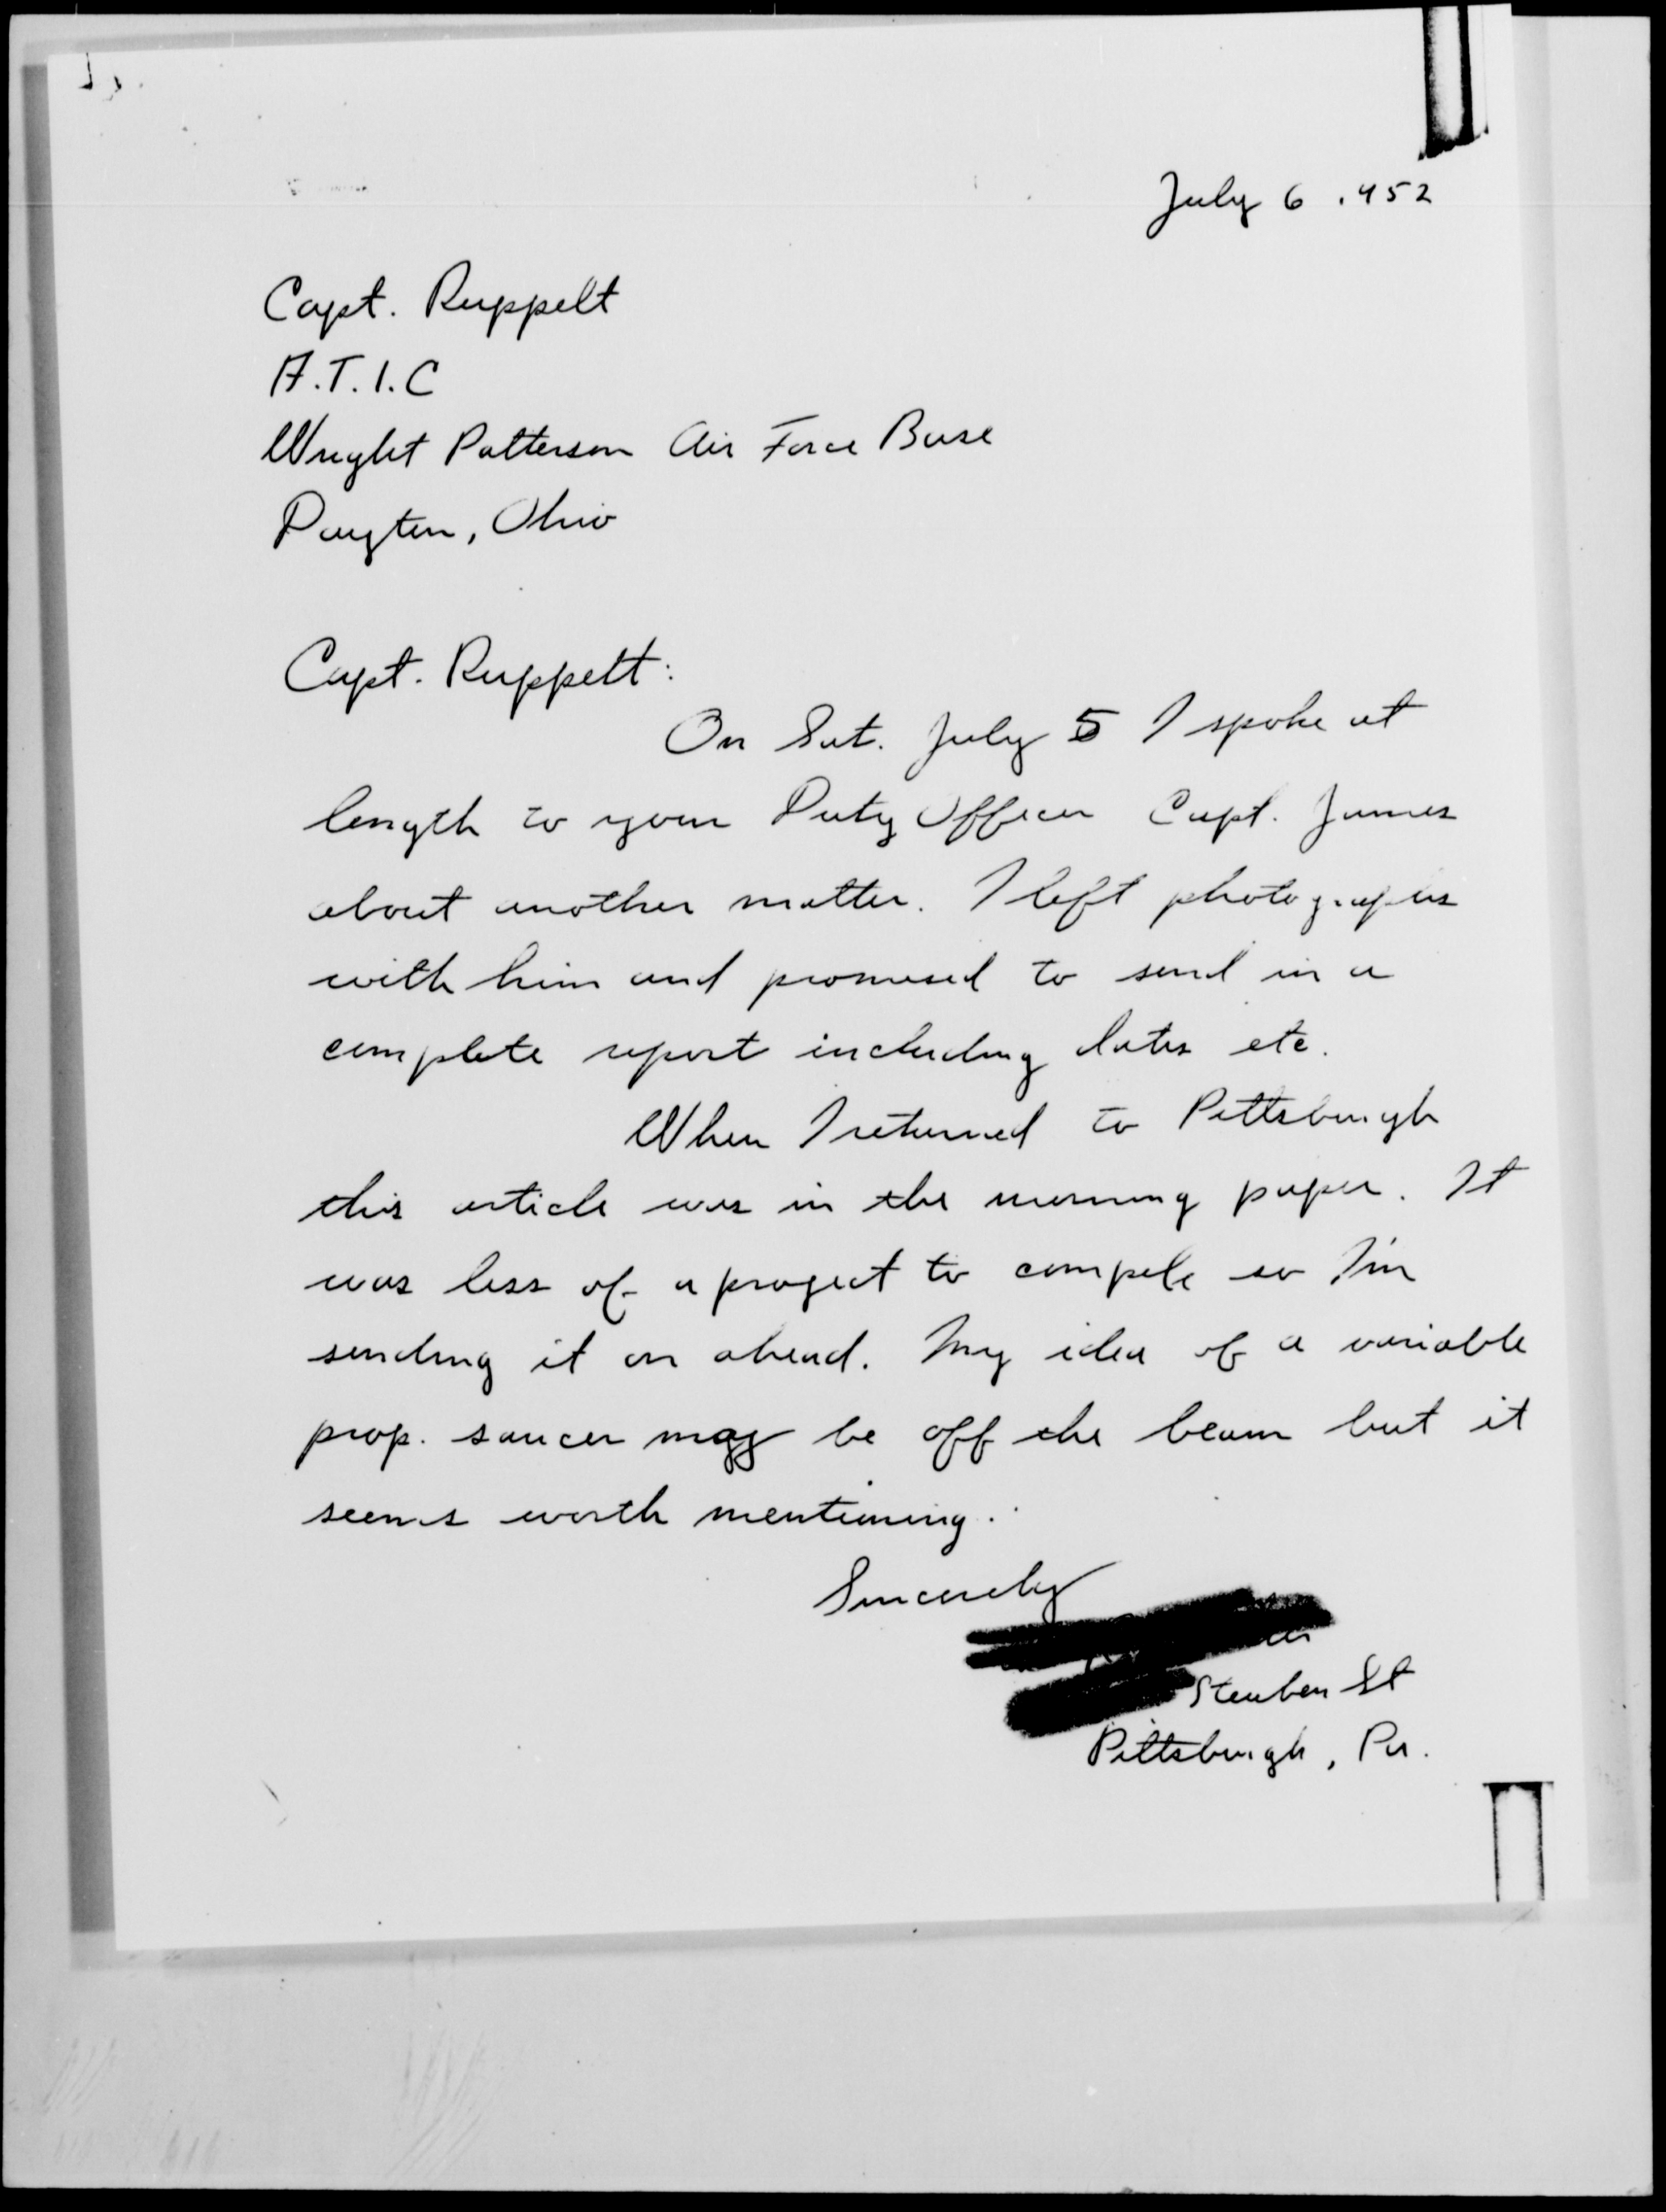 July 6 1952
Capt. Ruppelt
A.T.I.C
Wright Patterson Air Force Base
Dayton, Ohio
Capt. Ruppelt:
On Sat. July 5 I spoke at
length to your Duty Officer Capt. James
about another matter. I left photographs
with him and promised to send in a
complete report including dates etc.
When I returned to Pittsburgh
this article was in the morning paper. It
was less of a project to compile so I'm
sending it on ahead. My idea of a variable
prop. saucer may be off the beam but it
seems worth mentioning.
Sincerely
Steuben St
Pittsburgh, Pa.